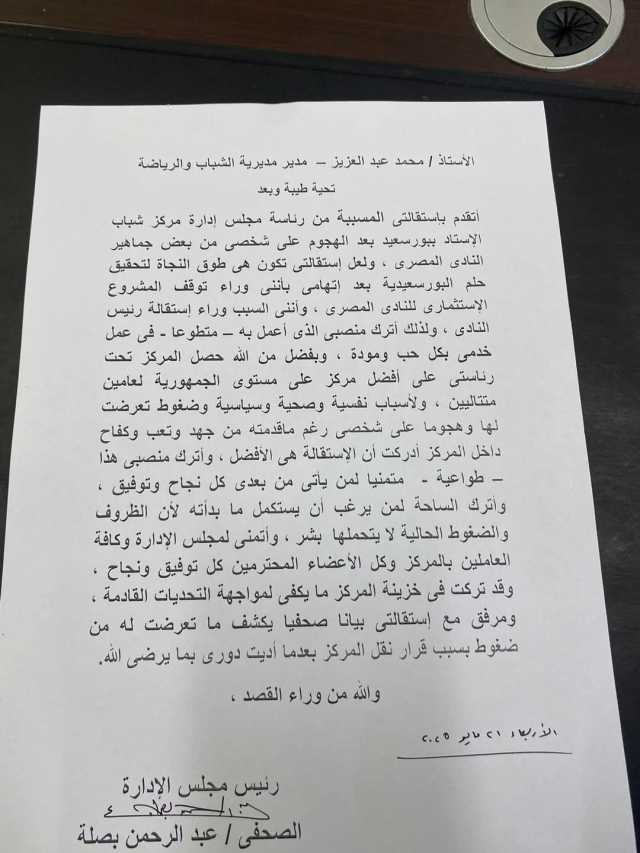 الأستاذ / محمد عبد العزيز – مدير مديرية الشباب والرياضة
تحية طيبة وبعد
أتقدم بإستقالتى المسببة من رئاسة مجلس إدارة مركز شباب
الإستاد ببورسعيد بعد الهجوم على شخصى من بعض جماهير
النادى المصرى ، ولعل إستقالتى تكون هى طوق النجاة لتحقيق
حلم البورسعيدية بعد إتهامى بأننى وراء توقف المشروع
الإستثمارى للنادى المصرى ، وأننى السبب وراء إستقالة رئيس
النادى ، ولذلك أترك منصبى الذى أعمل به – متطوعا - فى عمل
خدمى بكل حب ومودة ، وبفضل من الله حصل المركز تحت
رئاستى على أفضل مركز على مستوى الجمهورية لعامين
متتاليين ، ولأسباب نفسية وصحية وسياسية وضغوط تعرضت
لها وهجوما على شخصى رغم ماقدمته من جهد وتعب وكفاح
داخل المركز أدركت أن الإستقالة هى الأفضل ، وأترك منصبى هذا
– طواعية - متمنيا لمن يأتى من بعدى كل نجاح وتوفيق ،
وأترك الساحة لمن يرغب أن يستكمل ما بدأته لأن الظروف
والضغوط الحالية لا يتحملها بشر ، وأتمنى لمجلس الإدارة وكافة
العاملين بالمركز وكل الأعضاء المحترمين كل توفيق ونجاح ،
وقد تركت فى خزينة المركز ما يكفى لمواجهة التحديات القادمة ،
ومرفق مع إستقالتى بيانا صحفيا يكشف ما تعرضت له من
ضغوط بسبب قرار نقل المركز بعدما أديت دورى بما يرضى الله.
والله من وراء القصد ،
الأربعاء ٢١ مايو ٢٠٢٥
رئيس مجلس الإدارة
الصحفى / عبد الرحمن بصلة